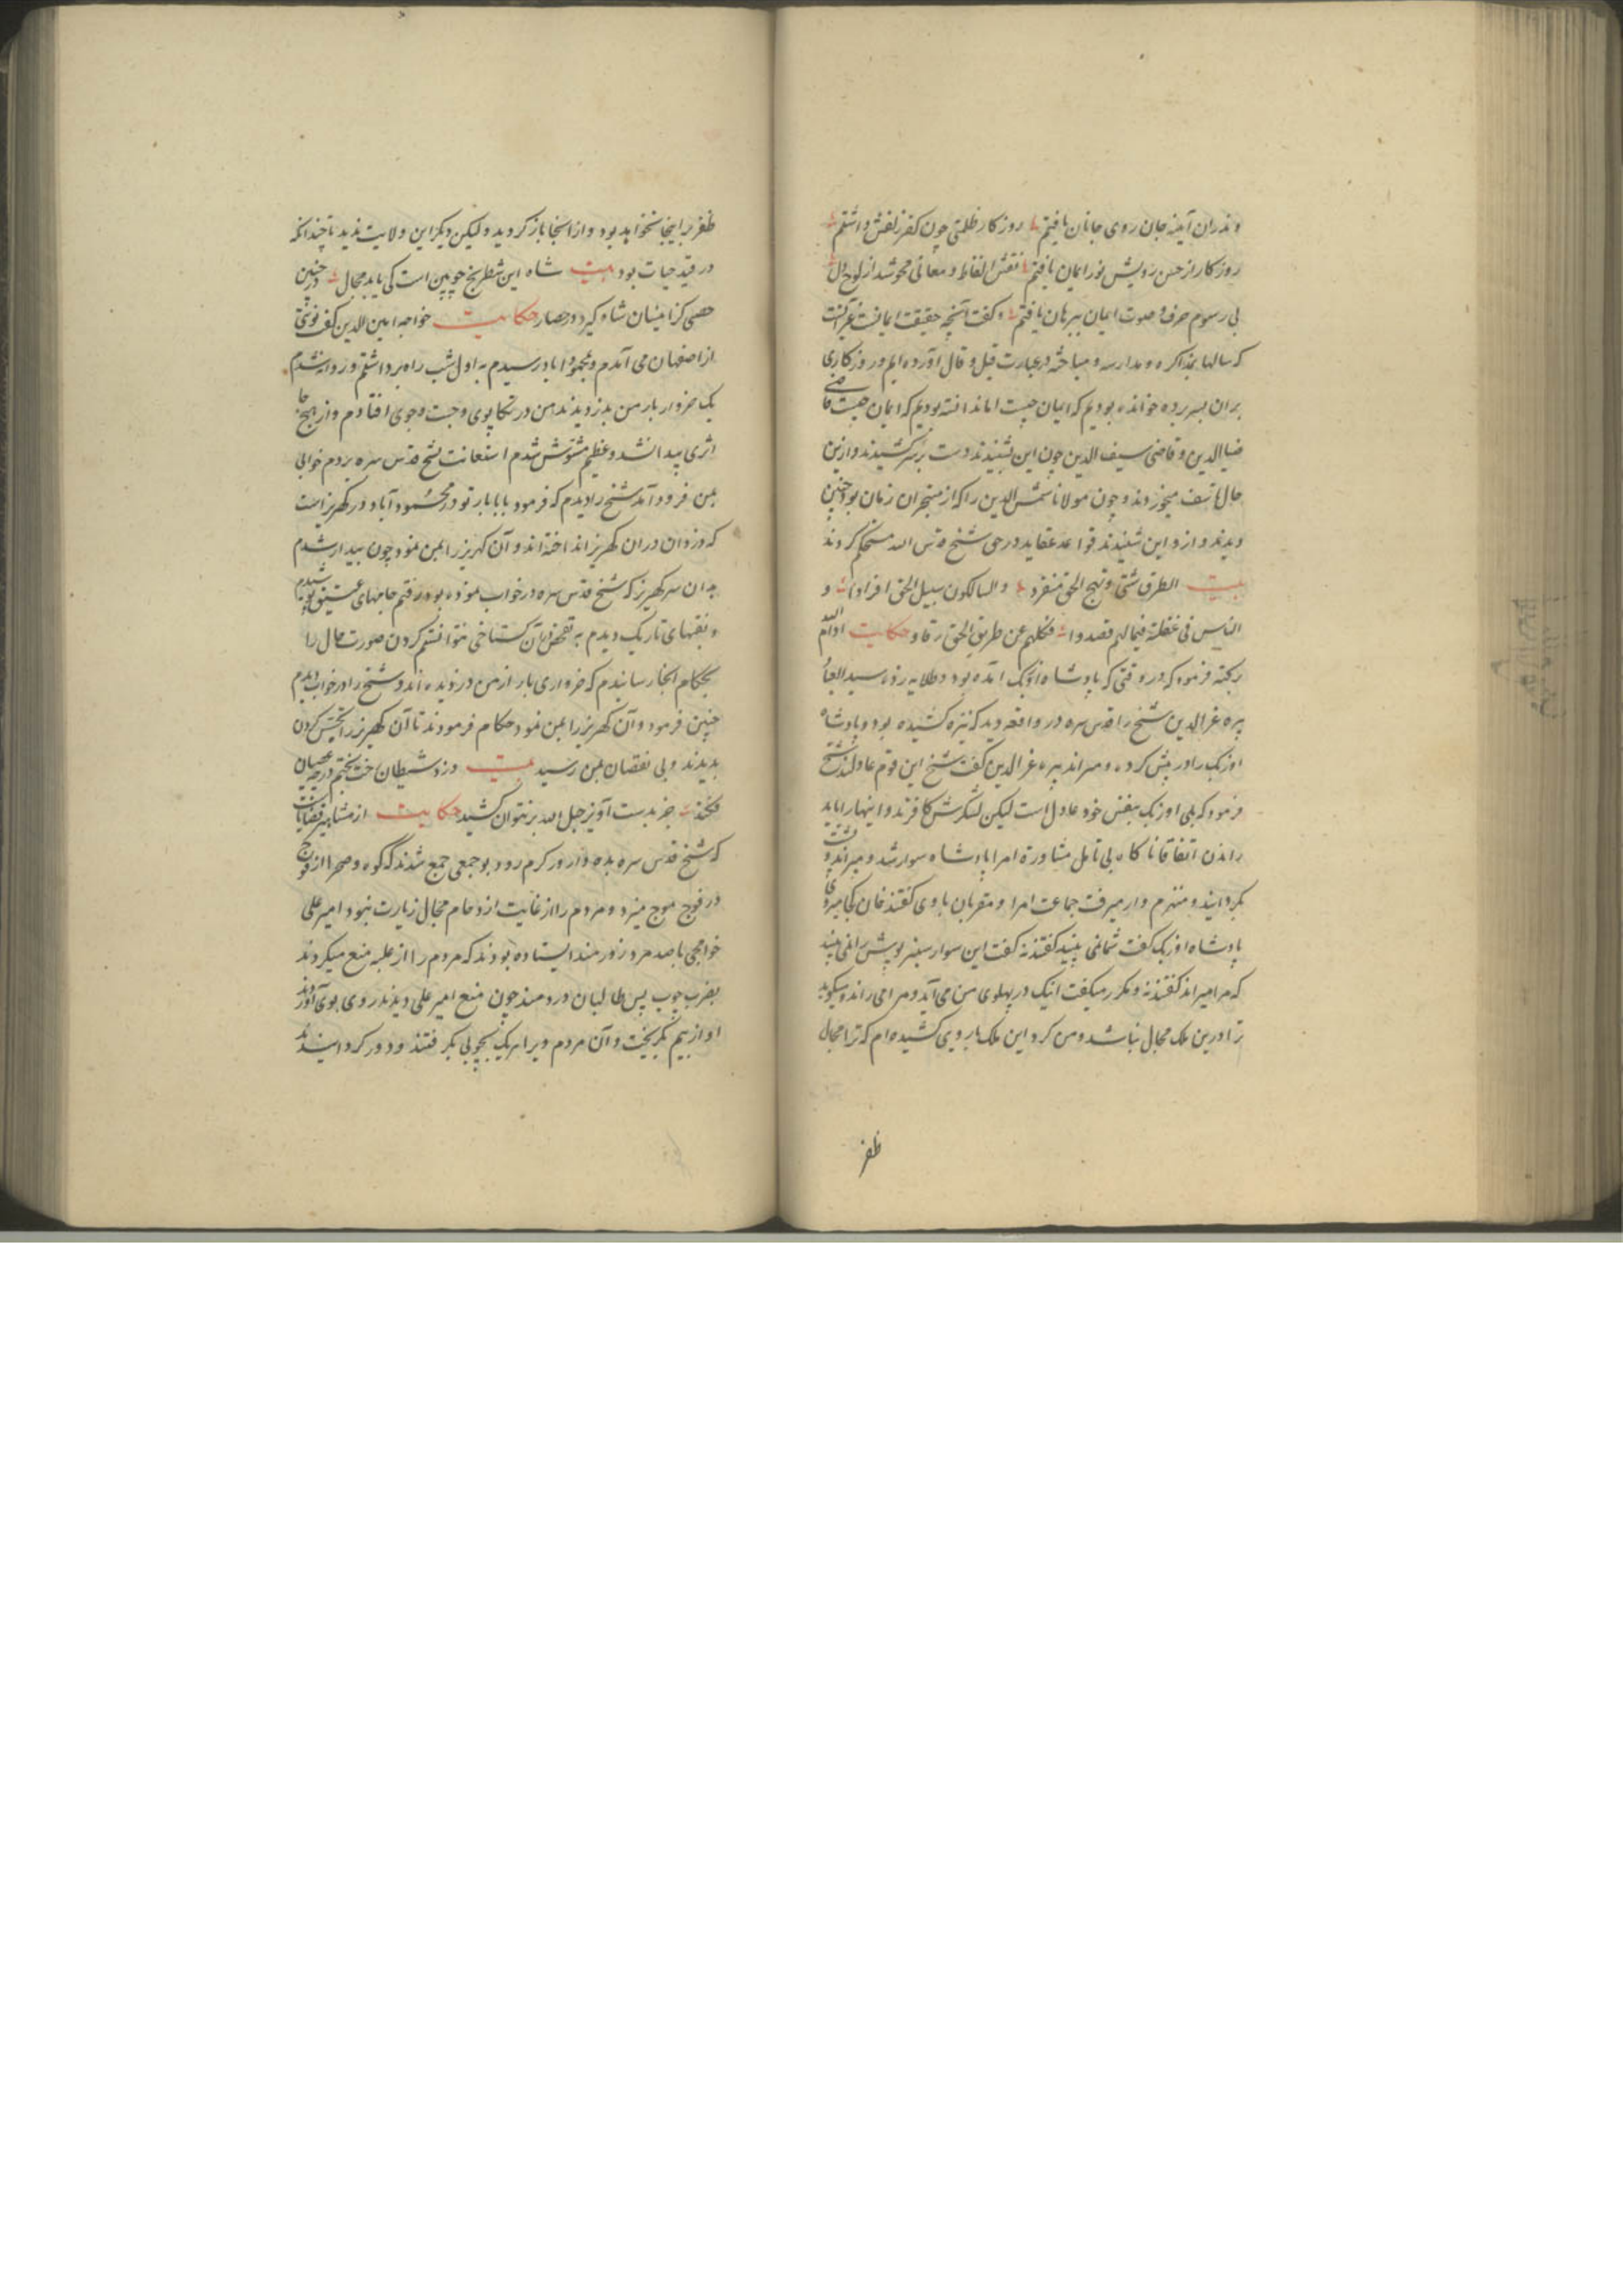 وندران آینه جان روی جانان یافتیم روزکار ظلمتی چون کفر زلفش داشتم
روزکار از حسن رویش نور ایمان یافتیم نقش الفاظ و معانی محو شد از لوح دل
بی رسوم حرف و صوت ایمان ببرهان یافتیم و کفت آنچه حقیقت ایمانست
که سالها بمذاکره و مدارسه و مباحثه در عبارت قیل و قال آورده ایم و روزکاری
بران بسر برده خوانده بودیم که ایمان چیست اما ندانسته بودیم که ایمان چیست قاضی
ضیاالدین و قاضی سیف الدین چون این شنیدند دست بر سر کشیدند و ازین
حال تاسف میخوردند و چون مولانا شمس الدین را که از متبحران زمان بود چنین
دیدند و ازو این شنیدند قواعد عقاید در حق شیخ قدس الله مستحکم کردند
بیت الطرق شتی و نهج الحق منفرد والسالکون سبیل الحق افراد و
الناس فی غفلة فیما لهم قصدوا فکلهم عن طریق الحق رقاد حکایت ادام الله
برکته فرمود که در وقتی که پادشاه اوزبک آمده بود و طلایه زده سید
پیره عزالدین شیخ را قدس سره در واقعه دید که نیزه کشیده بود و پادشاه
اوزبک را در پیش کرده و میراند پیره عزالدین کفت شیخ این قوم عادلند شیخ
فرمود که بلی اوزبک بنفس خود عادل است لیکن لشکرش کافرند و اینها را باید
راندن اتفاقا ناکاه بی تامل مشاورة امرا پادشاه سوار شد و میراند و پشت
بکردانید و منهزم وار میرفت جماعت امرا و مقربان با وی کفتند خان کجا میروی
پادشاه اوزبک کفت شما نمی بینید کفتند نه کفت این سوار سبزپوش را نمی بینید
که مرا میراند کفتند نه و مکرر میکفت اینک در پهلوی من می آید و مرا می راند و میکوید
ترا درین ملک مجال نباشد و من کرد این ملک باروی کشیده ام که ترا مجال
ظفر
ظفر بر اینجا نخواهد بود و از اینجا باز کردید و لیکن دیکر این ولایت ندید تا چندانکه
در قید حیات بود بیت شاه این شطرنج چوبین است کی یابد مجال در چنین
حصنی کزینسان شاه کیرد در حصار حکایت خواجه امین الدین کفت نوبتی
از اصفهان می آمدم و بمحموداباد رسیدم به اول شب راه برداشتم و روانه شدم
یک خروار بار من بدزدیدند من در تکاپوی و جست و جوی افتادم و از هیچ جا
اثری پیدا نشد و عظیم مشوش شدم استعانت بشیخ قدس سره بردم خوابی
بمن فرود آمد شیخ را دیدم که فرمود بابا بار تو در محمودآباد در کهریز است
که دزدان در ان کهریز انداخته اند و آن کهریز را بمن نمود چون بیدار شدم
بدان سر کهریز که شیخ قدس سره در خواب نموده بود رفتم چاههای عمیق
و نقبهای تاریک دیدم به تفحص آن کستاخی نتوانستم کردن صورت حال را
بحکام انجا رسانیدم که خرواری بار از من دزدیده اند و شیخ را در خواب دیدم
چنین فرمود و آن کهریز را بمن نمود حکام فرمودند تا آن کهریز را تفتیش کردن
بدیدند و بی نقصان بمن رسید بیت دزد شیطان رخت بختم در چه عصیان
فکند جز بدست آویز حبل الله بر نتوان کشید حکایت از مشاهیر قضایاست
که شیخ قدس سره بده داروکرم رود بود جمعی جمع شدند که کوه و صحرا از فوج
در فوج موج میزد و مردم را از غایت ازدحام مجال زیارت نبود امیر علی
خواجی با صد مرد زورمند ایستاده بودند که مردم را از غلبه منع میکردند
بضرب چوب پس طالبان دردمند چون منع امیر علی دیدند روی بوی آوردند
او از بیم بکریخت و آن مردم ویرا هر یک بچوبی بکرفتند و دور کردانیدند